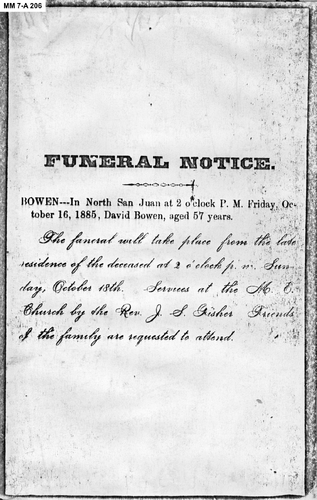 MM 7-A 206
FUNERAL NOTICE.
BOWEN---In North San Juan at 2 o'clock P. M. Friday, Oc-
tober 16, 1885, David Bowen, aged 57 years.
The funeral will take place from the late
residence of the deceased at 2 o'clock p. m. Sun-
day, October 18th. Services at the M. E.
Church by the Rev. J. S. Fisher Friends
of the family are requested to attend.